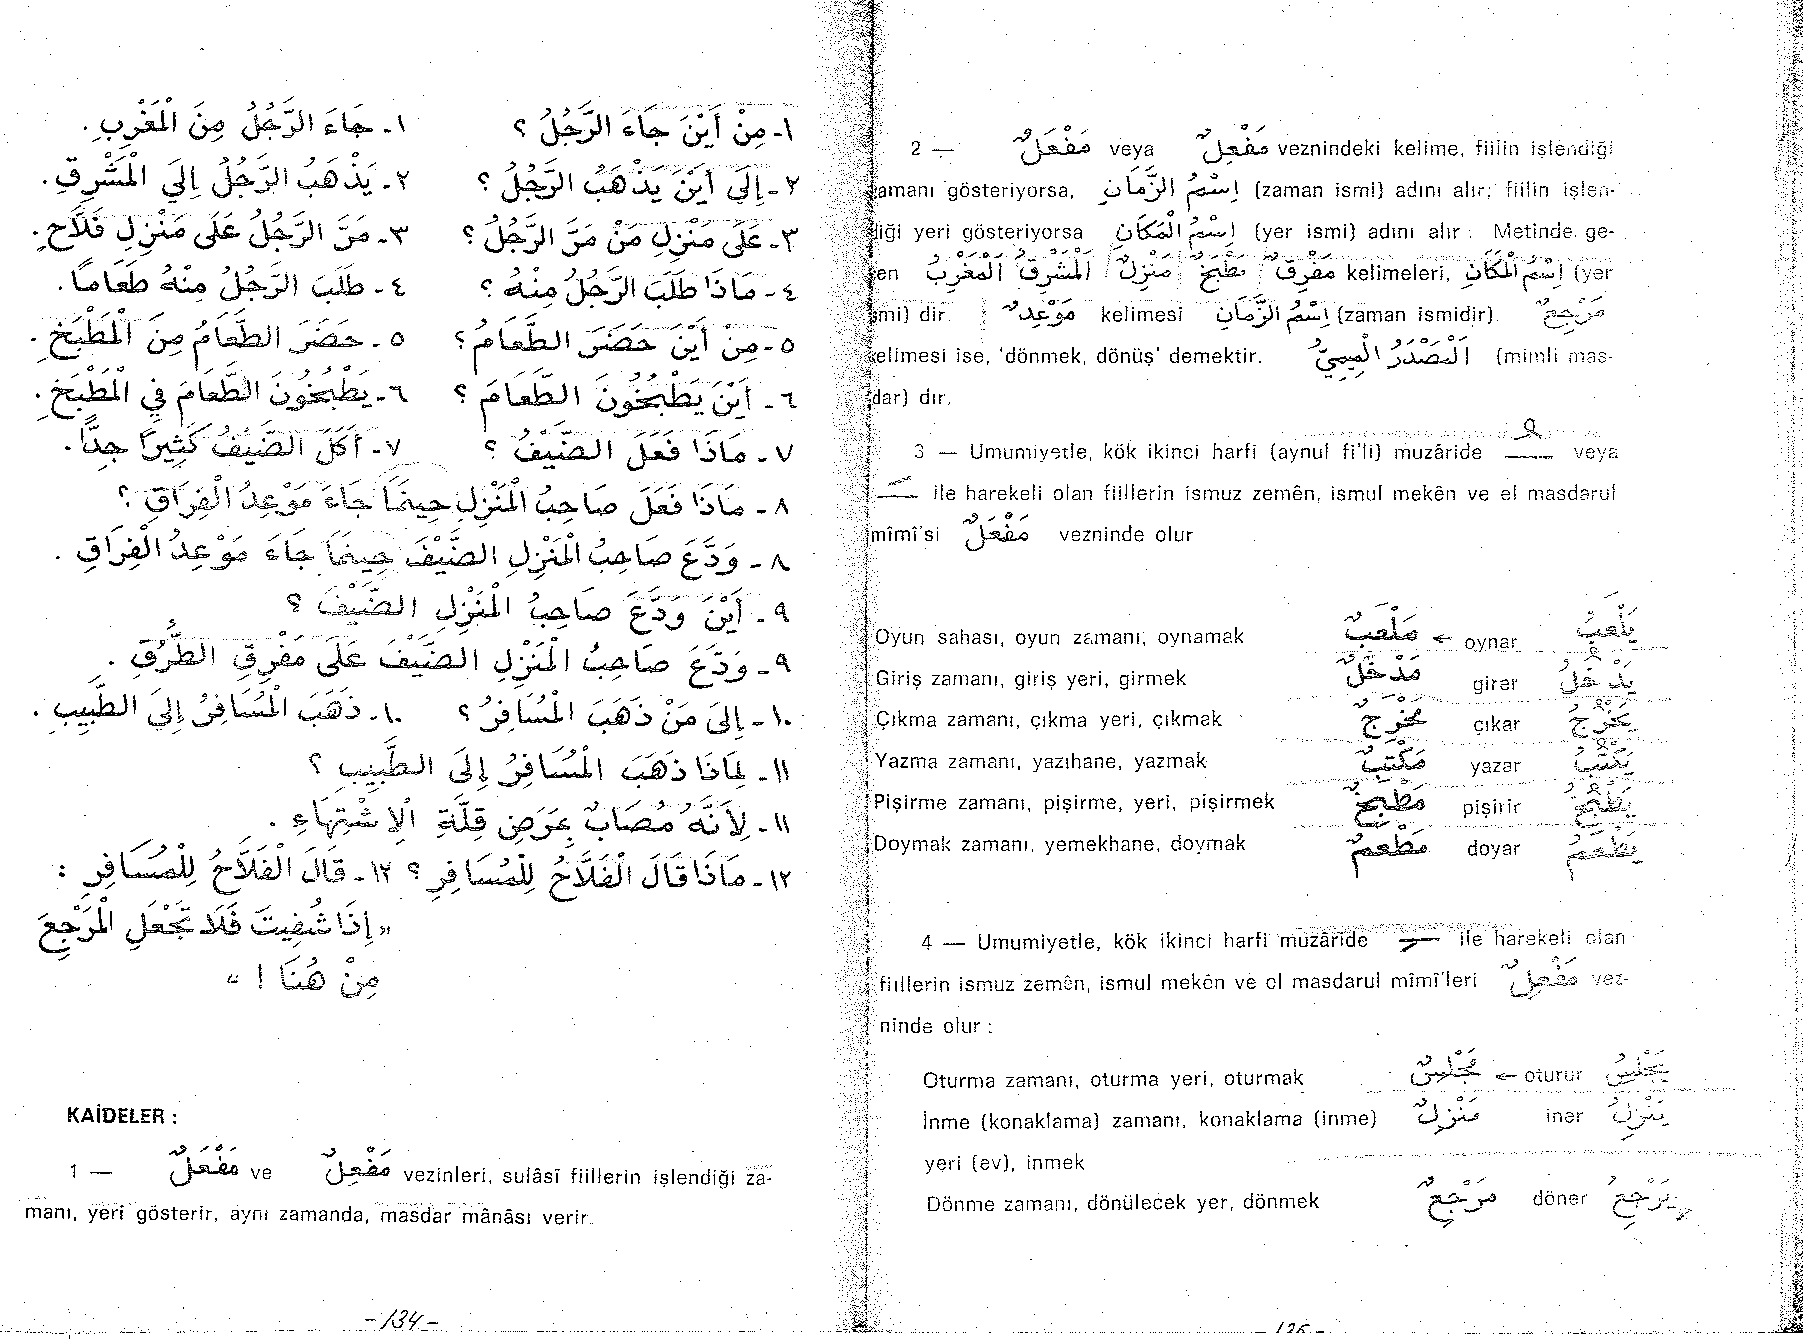 ١- مِنْ أَيْنَ جَاءَ الرَّجُلُ ؟ ١- جَاءَ الرَّجُلُ مِنَ الْمَغْرِبِ .
٢- إِلَى أَيْنَ يَذْهَبُ الرَّجُلُ ؟ ٢- يَذْهَبُ الرَّجُلُ إِلَي الْمَشْرِقِ .
٣- عَلَى مَنْزِلِ مَنْ مَرَّ الرَّجُلُ ؟ ٣- مَرَّ الرَّجُلُ عَلَى مَنْزِلِ فَلَّاحٍ .
٤- مَاذَا طَلَبَ الرَّجُلُ مِنْهُ ؟ ٤- طَلَبَ الرَّجُلُ مِنْهُ طَعَامًا .
٥- مِنْ أَيْنَ حَضَرَ الطَّعَامُ ؟ ٥- حَضَرَ الطَّعَامُ مِنَ الْمَطْبَخِ .
٦- أَيْنَ يَطْبَخُونَ الطَّعَامَ ؟ ٦- يَطْبَخُونَ الطَّعَامَ فِي الْمَطْبَخِ .
٧- مَاذَا فَعَلَ الضَّيْفُ ؟ ٧- أَكَلَ الضَّيْفُ كَثِيرًا جِدًّا .
٨- مَاذَا فَعَلَ صَاحِبُ الْمَنْزِلِ حِينَمَا جَاءَ مَوْعِدُ الْفِرَاقِ ؟
٨- وَدَّعَ صَاحِبُ الْمَنْزِلِ الضَّيْفَ حِينَمَا جَاءَ مَوْعِدُ الْفِرَاقِ .
٩- أَيْنَ وَدَّعَ صَاحِبُ الْمَنْزِلِ الضَّيْفَ ؟
٩- وَدَّعَ صَاحِبُ الْمَنْزِلِ الضَّيْفَ عَلَى مَفْرِقِ الطُّرُقِ .
١٠- إِلَى مَنْ ذَهَبَ الْمُسَافِرُ ؟ ١٠- ذَهَبَ الْمُسَافِرُ إِلَى الطَّبِيبِ .
١١- لِمَاذَا ذَهَبَ الْمُسَافِرُ إِلَى الطَّبِيبِ ؟
١١- لِأَنَّهُ مُصَابٌ بِمَرَضِ قِلَّةِ الْاِشْتِهَاءِ .
١٢- مَاذَا قَالَ الْفَلَّاحُ لِلْمُسَافِرِ ؟ ١٢- قَالَ الْفَلَّاحُ لِلْمُسَافِرِ :
« إِذَا شُفِيتَ فَلَا تَجْعَلِ الْمَرْجِعَ
مِنْ هُنَا ! »
KAİDELER :
1 — مَفْعَلٌ ve مَفْعِلٌ vezinleri, sulâsî fiillerin işlendiği za-
manı, yeri gösterir, aynı zamanda, masdar mânâsı verir.
-134-
2 — مَفْعَلٌ veya مَفْعِلٌ veznindeki kelime, fiilin işlendiği
zamanı gösteriyorsa, اِسْمُ الزَّمَانِ (zaman ismi) adını alır; fiilin işlen-
diği yeri gösteriyorsa اِسْمُ الْمَكَانِ (yer ismi) adını alır : Metinde ge-
en اَلْمَغْرِبُ اَلْمَشْرِقُ مَنْزِلٌ مَطْبَخٌ مَفْرِقٌ kelimeleri, اِسْمُ الْمَكَانِ (yer
smi) dir. مَوْعِدٌ kelimesi اِسْمُ الزَّمَانِ (zaman ismidir). مَرْجِعٌ
kelimesi ise, 'dönmek, dönüş' demektir. اَلْمَصْدَرُ الْمِيمِيُّ (mimli mas-
dar) dır.
3 — Umumiyetle, kök ikinci harfi (aynul fi'li) muzâride ُ veya
َ ile harekeli olan fiillerin ismuz zemên, ismul mekên ve el masdarul
mîmî'si مَفْعَلٌ vezninde olur
Oyun sahası, oyun zamanı, oynamak مَلْعَبٌ ← oynar يَلْعَبُ
Giriş zamanı, giriş yeri, girmek مَدْخَلٌ girer يَدْخُلُ
Çıkma zamanı, çıkma yeri, çıkmak مَخْرَجٌ çıkar يَخْرُجُ
Yazma zamanı, yazıhane, yazmak مَكْتَبٌ yazar يَكْتُبُ
Pişirme zamanı, pişirme, yeri, pişirmek مَطْبَخٌ pişirir يَطْبُخُ
Doymak zamanı, yemekhane, doymak مَطْعَمٌ doyar يَطْعَمُ
4 — Umumiyetle, kök ikinci harfi muzâride ِ ile harekeli olan
fiillerin ismuz zemên, ismul mekên ve el masdarul mîmî'leri مَفْعِلٌ vez-
ninde olur :
Oturma zamanı, oturma yeri, oturmak مَجْلِسٌ ← oturur يَجْلِسُ
İnme (konaklama) zamanı, konaklama (inme) مَنْزِلٌ iner يَنْزِلُ
yeri (ev), inmek
Dönme zamanı, dönülecek yer, dönmek مَرْجِعٌ döner يَرْجِعُ
-135-